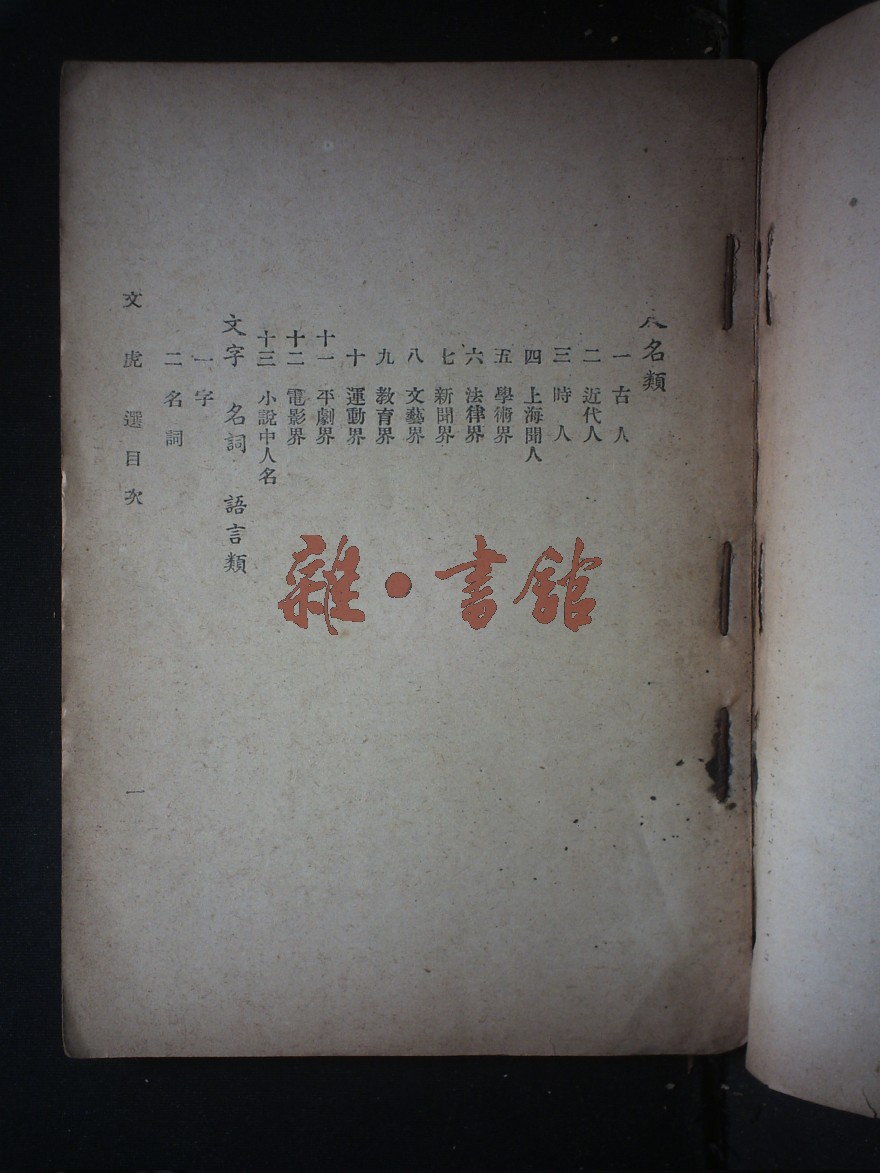 人名類
一 古人
二 近代人
三 時人
四 上海聞人
五 學術界
六 法律界
七 新聞界
八 文藝界
九 教育界
十 運動界
十一 平劇界
十二 電影界
十三 小說中人名
文字 名詞 語言類
一 字
二 名詞
文虎選目次
一
雜·書館